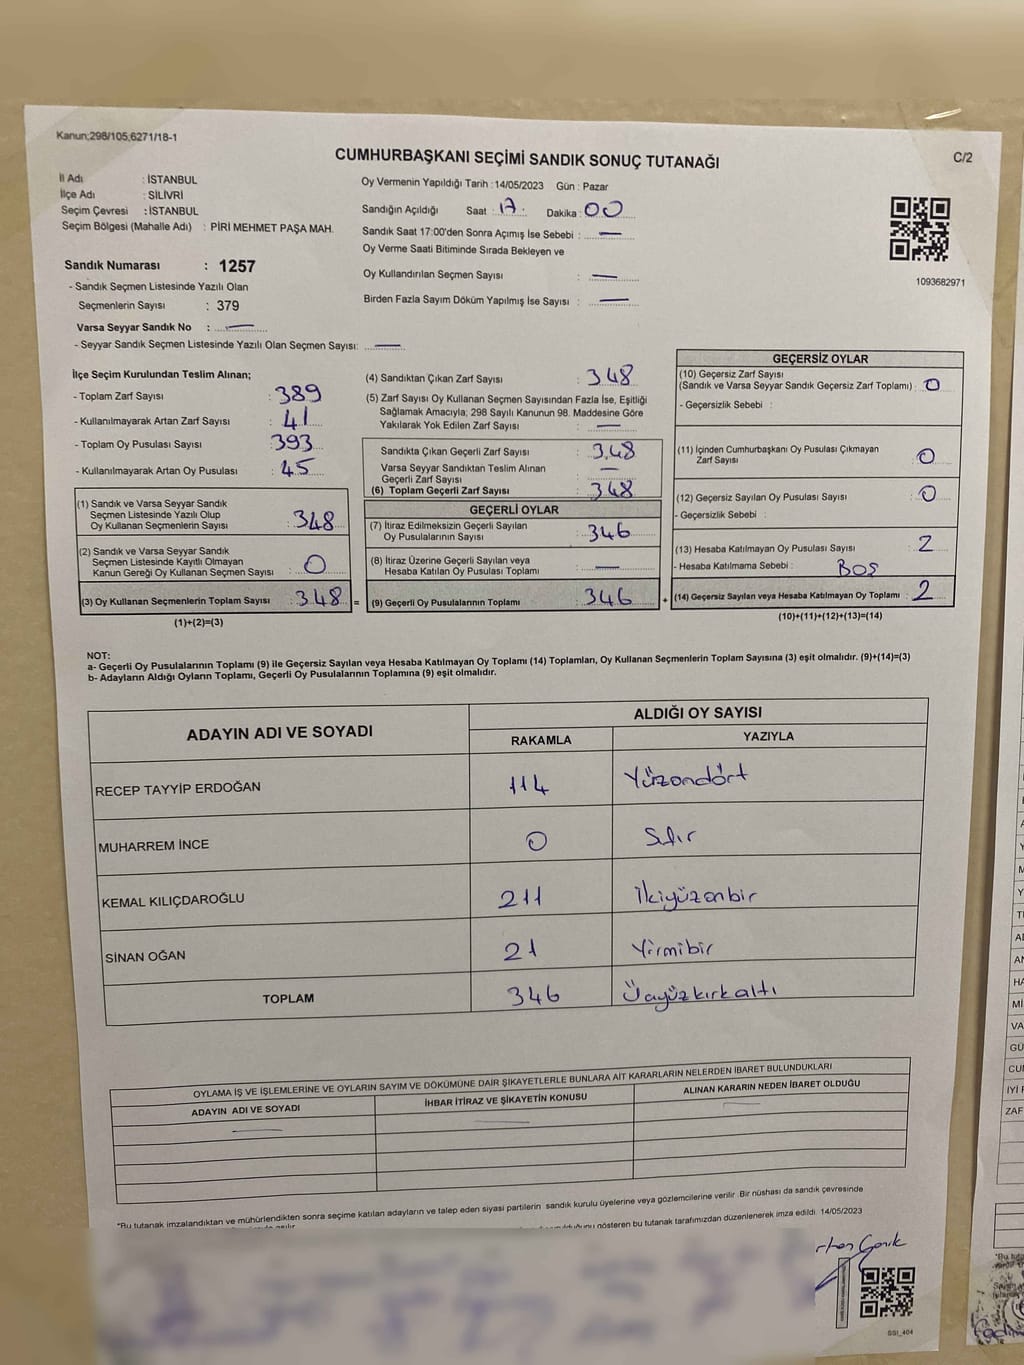 Kanun;298/105,6271/18-1
CUMHURBAŞKANI SEÇİMİ SANDIK SONUÇ TUTANAĞI
C/2
İl Adı : İSTANBUL
İlçe Adı : SİLİVRİ
Seçim Çevresi : İSTANBUL
Seçim Bölgesi (Mahalle Adı) : PİRİ MEHMET PAŞA MAH.
Oy Vermenin Yapıldığı Tarih : 14/05/2023 Gün : Pazar
Sandığın Açıldığı Saat : 17. Dakika : 00
Sandık Saat 17:00'den Sonra Açımış İse Sebebi : —
Oy Verme Saati Bitiminde Sırada Bekleyen ve
Oy Kullandırılan Seçmen Sayısı : —
Birden Fazla Sayım Döküm Yapılmış İse Sayısı : —
1093682971
Sandık Numarası : 1257
- Sandık Seçmen Listesinde Yazılı Olan
Seçmenlerin Sayısı : 379
Varsa Seyyar Sandık No : —
- Seyyar Sandık Seçmen Listesinde Yazılı Olan Seçmen Sayısı: —
İlçe Seçim Kurulundan Teslim Alınan;
- Toplam Zarf Sayısı : 389
- Kullanılmayarak Artan Zarf Sayısı : 41
- Toplam Oy Pusulası Sayısı : 393
- Kullanılmayarak Artan Oy Pusulası : 45
(1) Sandık ve Varsa Seyyar Sandık
Seçmen Listesinde Yazılı Olup
Oy Kullanan Seçmenlerin Sayısı : 348
(2) Sandık ve Varsa Seyyar Sandık
Seçmen Listesinde Kayıtlı Olmayan
Kanun Gereği Oy Kullanan Seçmen Sayısı : 0
(3) Oy Kullanan Seçmenlerin Toplam Sayısı : 348 =
(1)+(2)=(3)
(4) Sandıktan Çıkan Zarf Sayısı : 348
(5) Zarf Sayısı Oy Kullanan Seçmen Sayısından Fazla İse, Eşitliği
Sağlamak Amacıyla; 298 Sayılı Kanunun 98. Maddesine Göre
Yakılarak Yok Edilen Zarf Sayısı : —
Sandıkta Çıkan Geçerli Zarf Sayısı : 348
Varsa Seyyar Sandıktan Teslim Alınan
Geçerli Zarf Sayısı : —
(6) Toplam Geçerli Zarf Sayısı : 348
GEÇERLİ OYLAR
(7) İtiraz Edilmeksizin Geçerli Sayılan
Oy Pusulalarının Sayısı : 346
(8) İtiraz Üzerine Geçerli Sayılan veya
Hesaba Katılan Oy Pusulası Toplamı : —
(9) Geçerli Oy Pusulalarının Toplamı : 346 +
GEÇERSİZ OYLAR
(10) Geçersiz Zarf Sayısı
(Sandık ve Varsa Seyyar Sandık Geçersiz Zarf Toplamı) : 0
- Geçersizlik Sebebi :
(11) İçinden Cumhurbaşkanı Oy Pusulası Çıkmayan
Zarf Sayısı : 0
(12) Geçersiz Sayılan Oy Pusulası Sayısı : 0
- Geçersizlik Sebebi :
(13) Hesaba Katılmayan Oy Pusulası Sayısı : 2
- Hesaba Katılmama Sebebi : BOŞ
(14) Geçersiz Sayılan veya Hesaba Katılmayan Oy Toplamı : 2
(10)+(11)+(12)+(13)=(14)
NOT:
a- Geçerli Oy Pusulalarının Toplamı (9) ile Geçersiz Sayılan veya Hesaba Katılmayan Oy Toplamı (14) Toplamları, Oy Kullanan Seçmenlerin Toplam Sayısına (3) eşit olmalıdır. (9)+(14)=(3)
b- Adayların Aldığı Oyların Toplamı, Geçerli Oy Pusulalarının Toplamına (9) eşit olmalıdır.
ADAYIN ADI VE SOYADI
ALDIĞI OY SAYISI
RAKAMLA YAZIYLA
RECEP TAYYİP ERDOĞAN 114 Yüzondört
MUHARREM İNCE 0 Sıfır
KEMAL KILIÇDAROĞLU 211 İkiyüzonbir
SİNAN OĞAN 21 Yirmibir
TOPLAM 346 Üçyüzkırkaltı
OYLAMA İŞ VE İŞLEMLERİNE VE OYLARIN SAYIM VE DÖKÜMÜNE DAİR ŞİKAYETLERLE BUNLARA AİT KARARLARIN NELERDEN İBARET BULUNDUKLARI
ADAYIN ADI VE SOYADI İHBAR İTİRAZ VE ŞİKAYETİN KONUSU ALINAN KARARIN NEDEN İBARET OLDUĞU
*Bu tutanak imzalandıktan ve mühürlendikten sonra seçime katılan adayların ve talep eden siyasi partilerin sandık kurulu üyelerine veya gözlemcilerine verilir. Bir nüshası da sandık çevresinde
gösteren bu tutanak tarafımızdan düzenlenerek imza edildi. 14/05/2023
SSİ_404